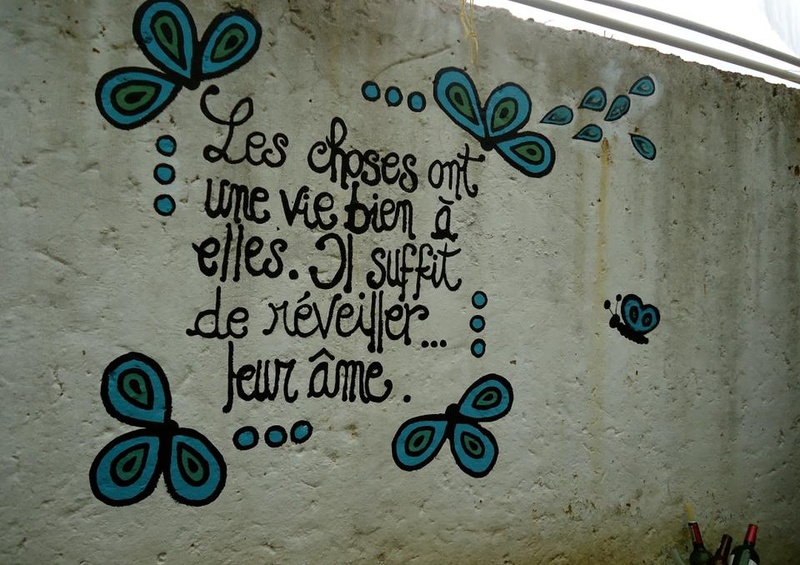 Les choses ont
une vie bien à
elles. Il suffit
de réveiller...
leur âme.